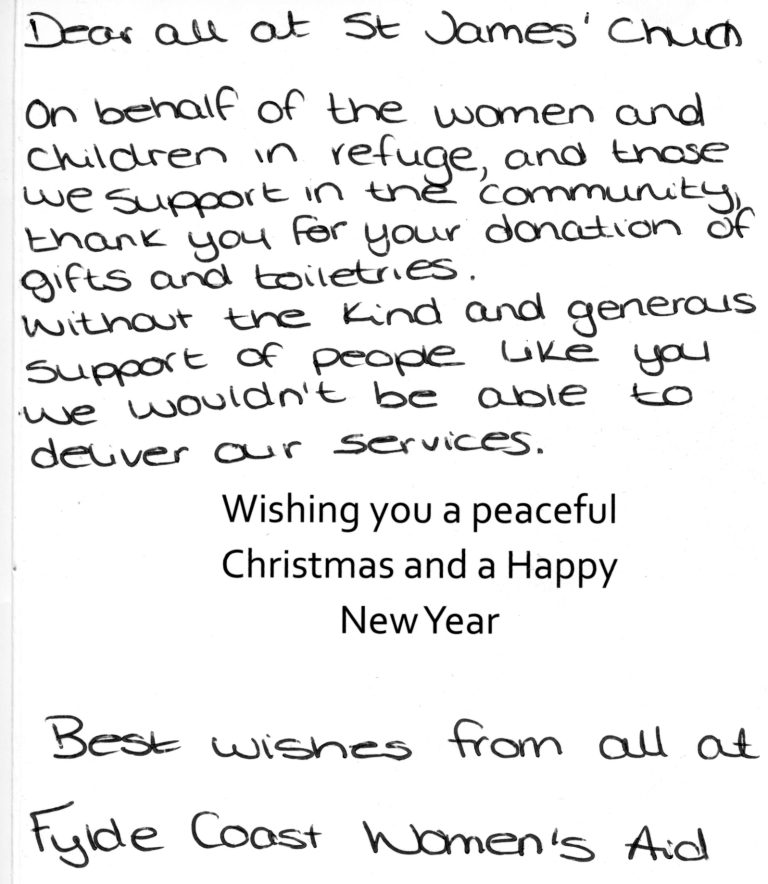 Dear all at St James' Church
On behalf of the women and
children in refuge, and those
we support in the community,
thank you for your donation of
gifts and toiletries.
Without the kind and generous
support of people like you
we wouldn't be able to
deliver our services.
Wishing you a peaceful
Christmas and a Happy
New Year
Best wishes from all at
Fylde Coast Women's Aid